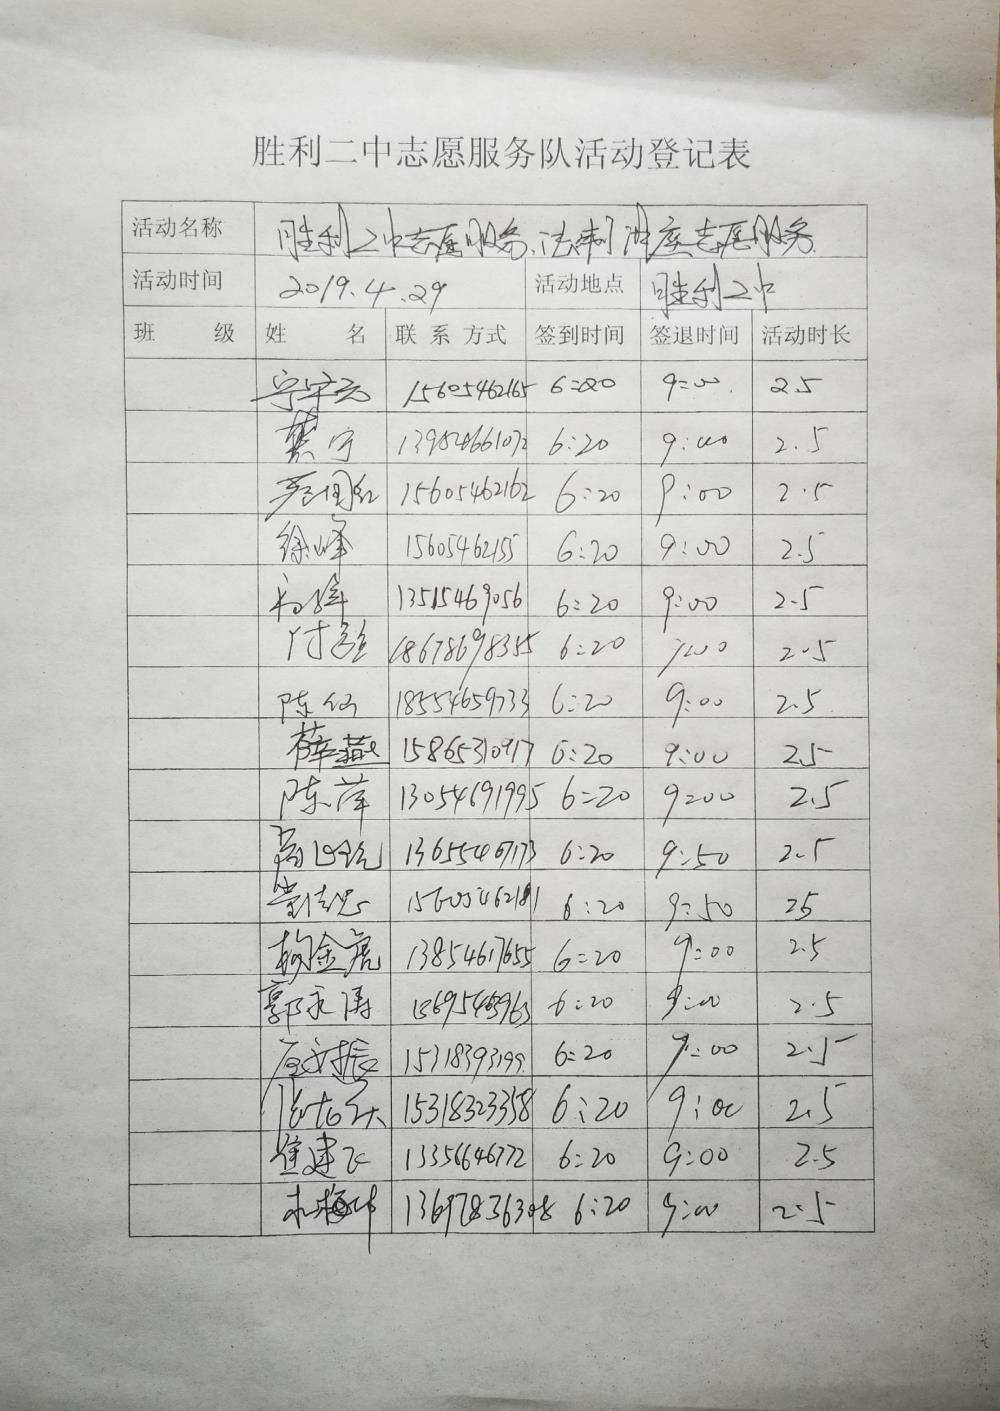 胜利二中志愿服务队活动登记表
活动名称 胜利二中志愿服务、法制进座志愿服务
活动时间 2019.4.29 活动地点 胜利二中
班 级 姓 名 联系方式 签到时间 签退时间 活动时长
15605462165 6:20 9:00 2.5
13954661072 6:20 9:00 2.5
15605462162 6:20 9:00 2.5
徐峰 15605462155 6:20 9:00 2.5
13515469056 6:20 9:00 2.5
18678698355 6:20 9:00 2.5
陈仙 18554659733 6:20 9:00 2.5
薛燕 15865310917 6:20 9:00 2.5
陈萍 13054691995 6:20 9:00 2.5
13655467173 6:20 9:50 2.5
15605462181 6:20 9:50 25
杨金虎 13854617655 6:20 9:00 2.5
郭永涛 6:20 9:00 2.5
15318393199 6:20 9:00 2.5
15318323358 6:20 9:00 2.5
崔建飞 13356646772 6:20 9:00 2.5
6:20 9:00 2.5